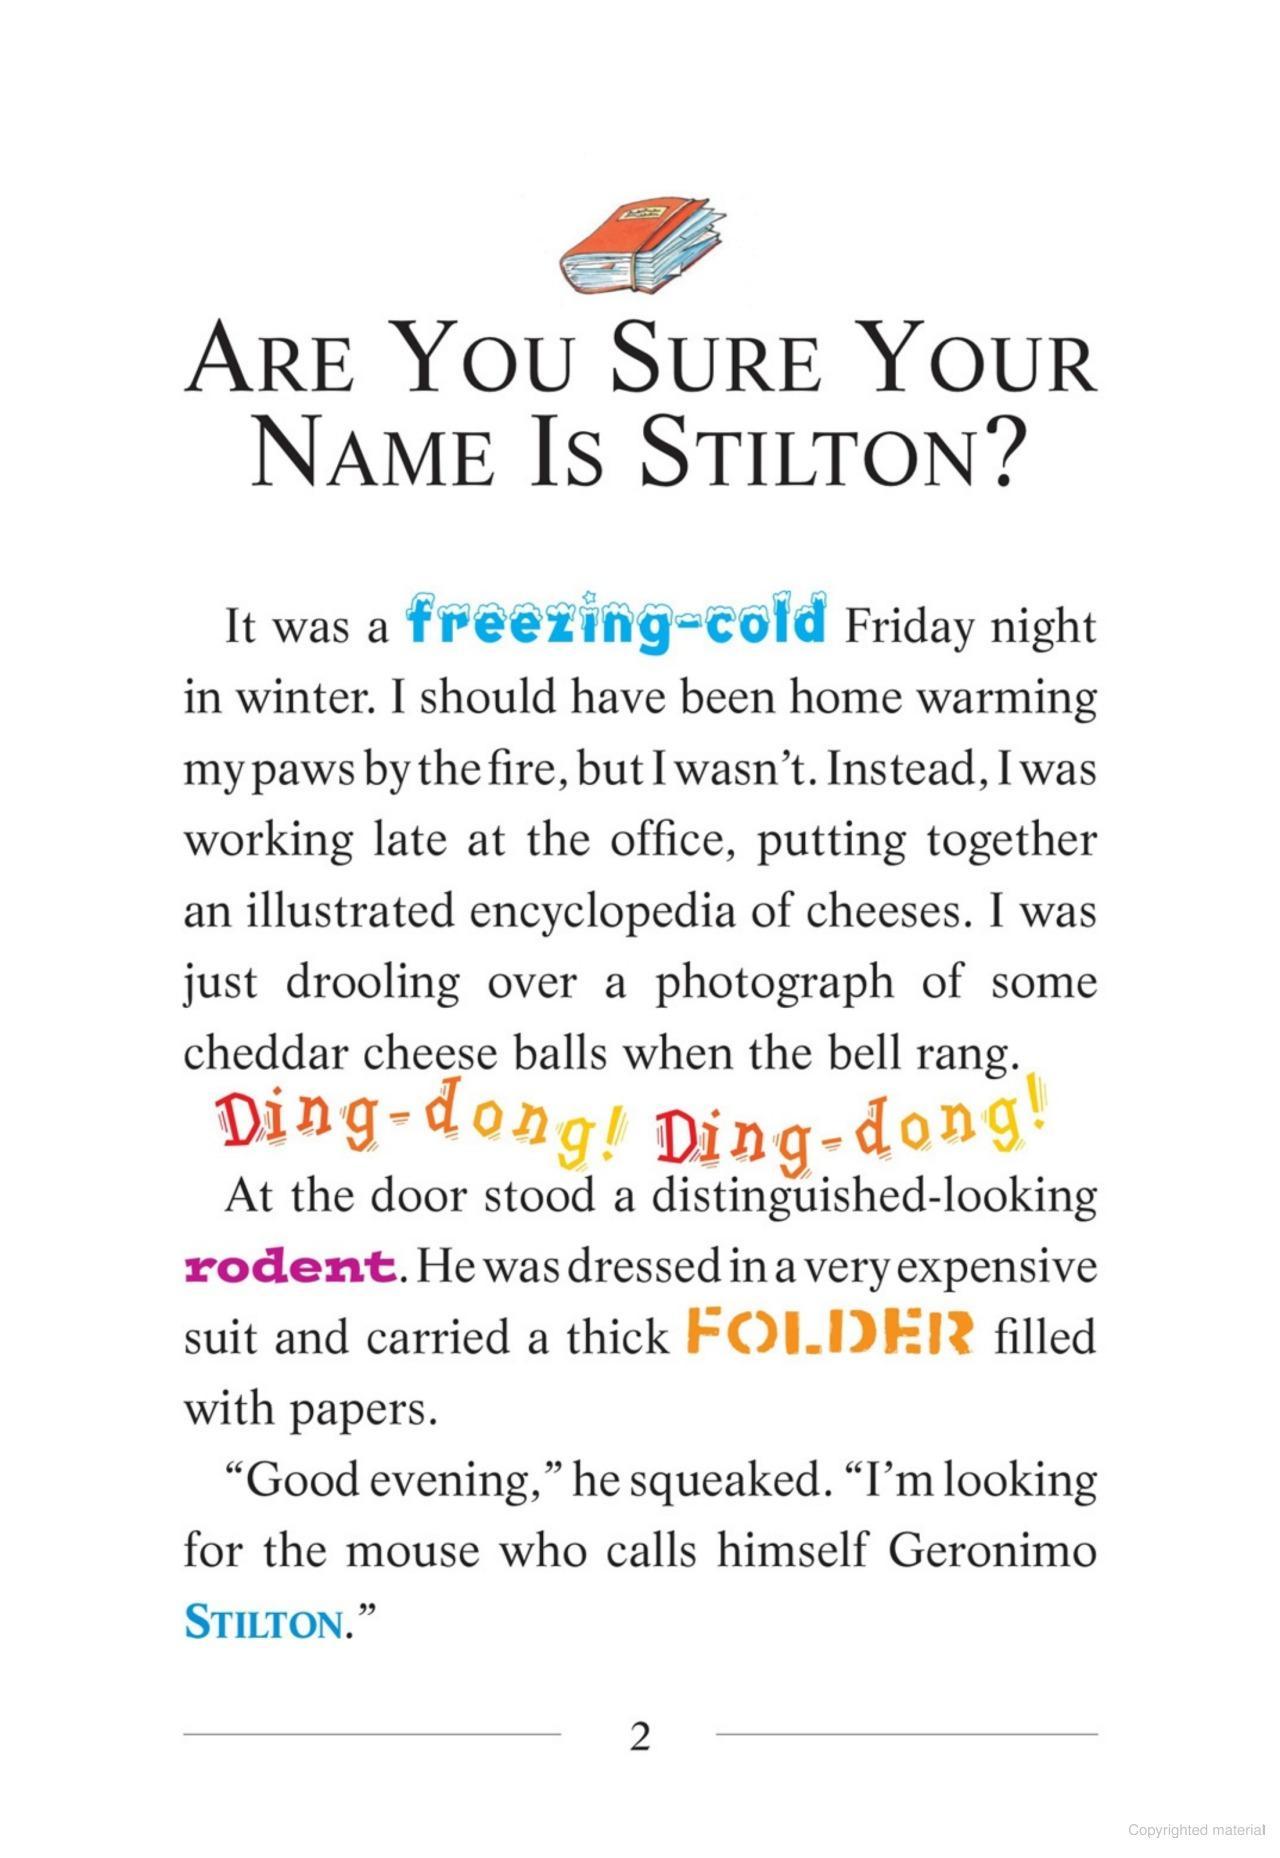 ARE YOU SURE YOUR
NAME IS STILTON?
It was a freezing-cold Friday night
in winter. I should have been home warming
my paws by the fire, but I wasn’t. Instead, I was
working late at the office, putting together
an illustrated encyclopedia of cheeses. I was
just drooling over a photograph of some
cheddar cheese balls when the bell rang.
Ding-dong! Ding-dong!
At the door stood a distinguished-looking
rodent. He was dressed in a very expensive
suit and carried a thick FOLDER filled
with papers.
“Good evening,” he squeaked. “I’m looking
for the mouse who calls himself Geronimo
STILTON.”
2
Copyrighted material